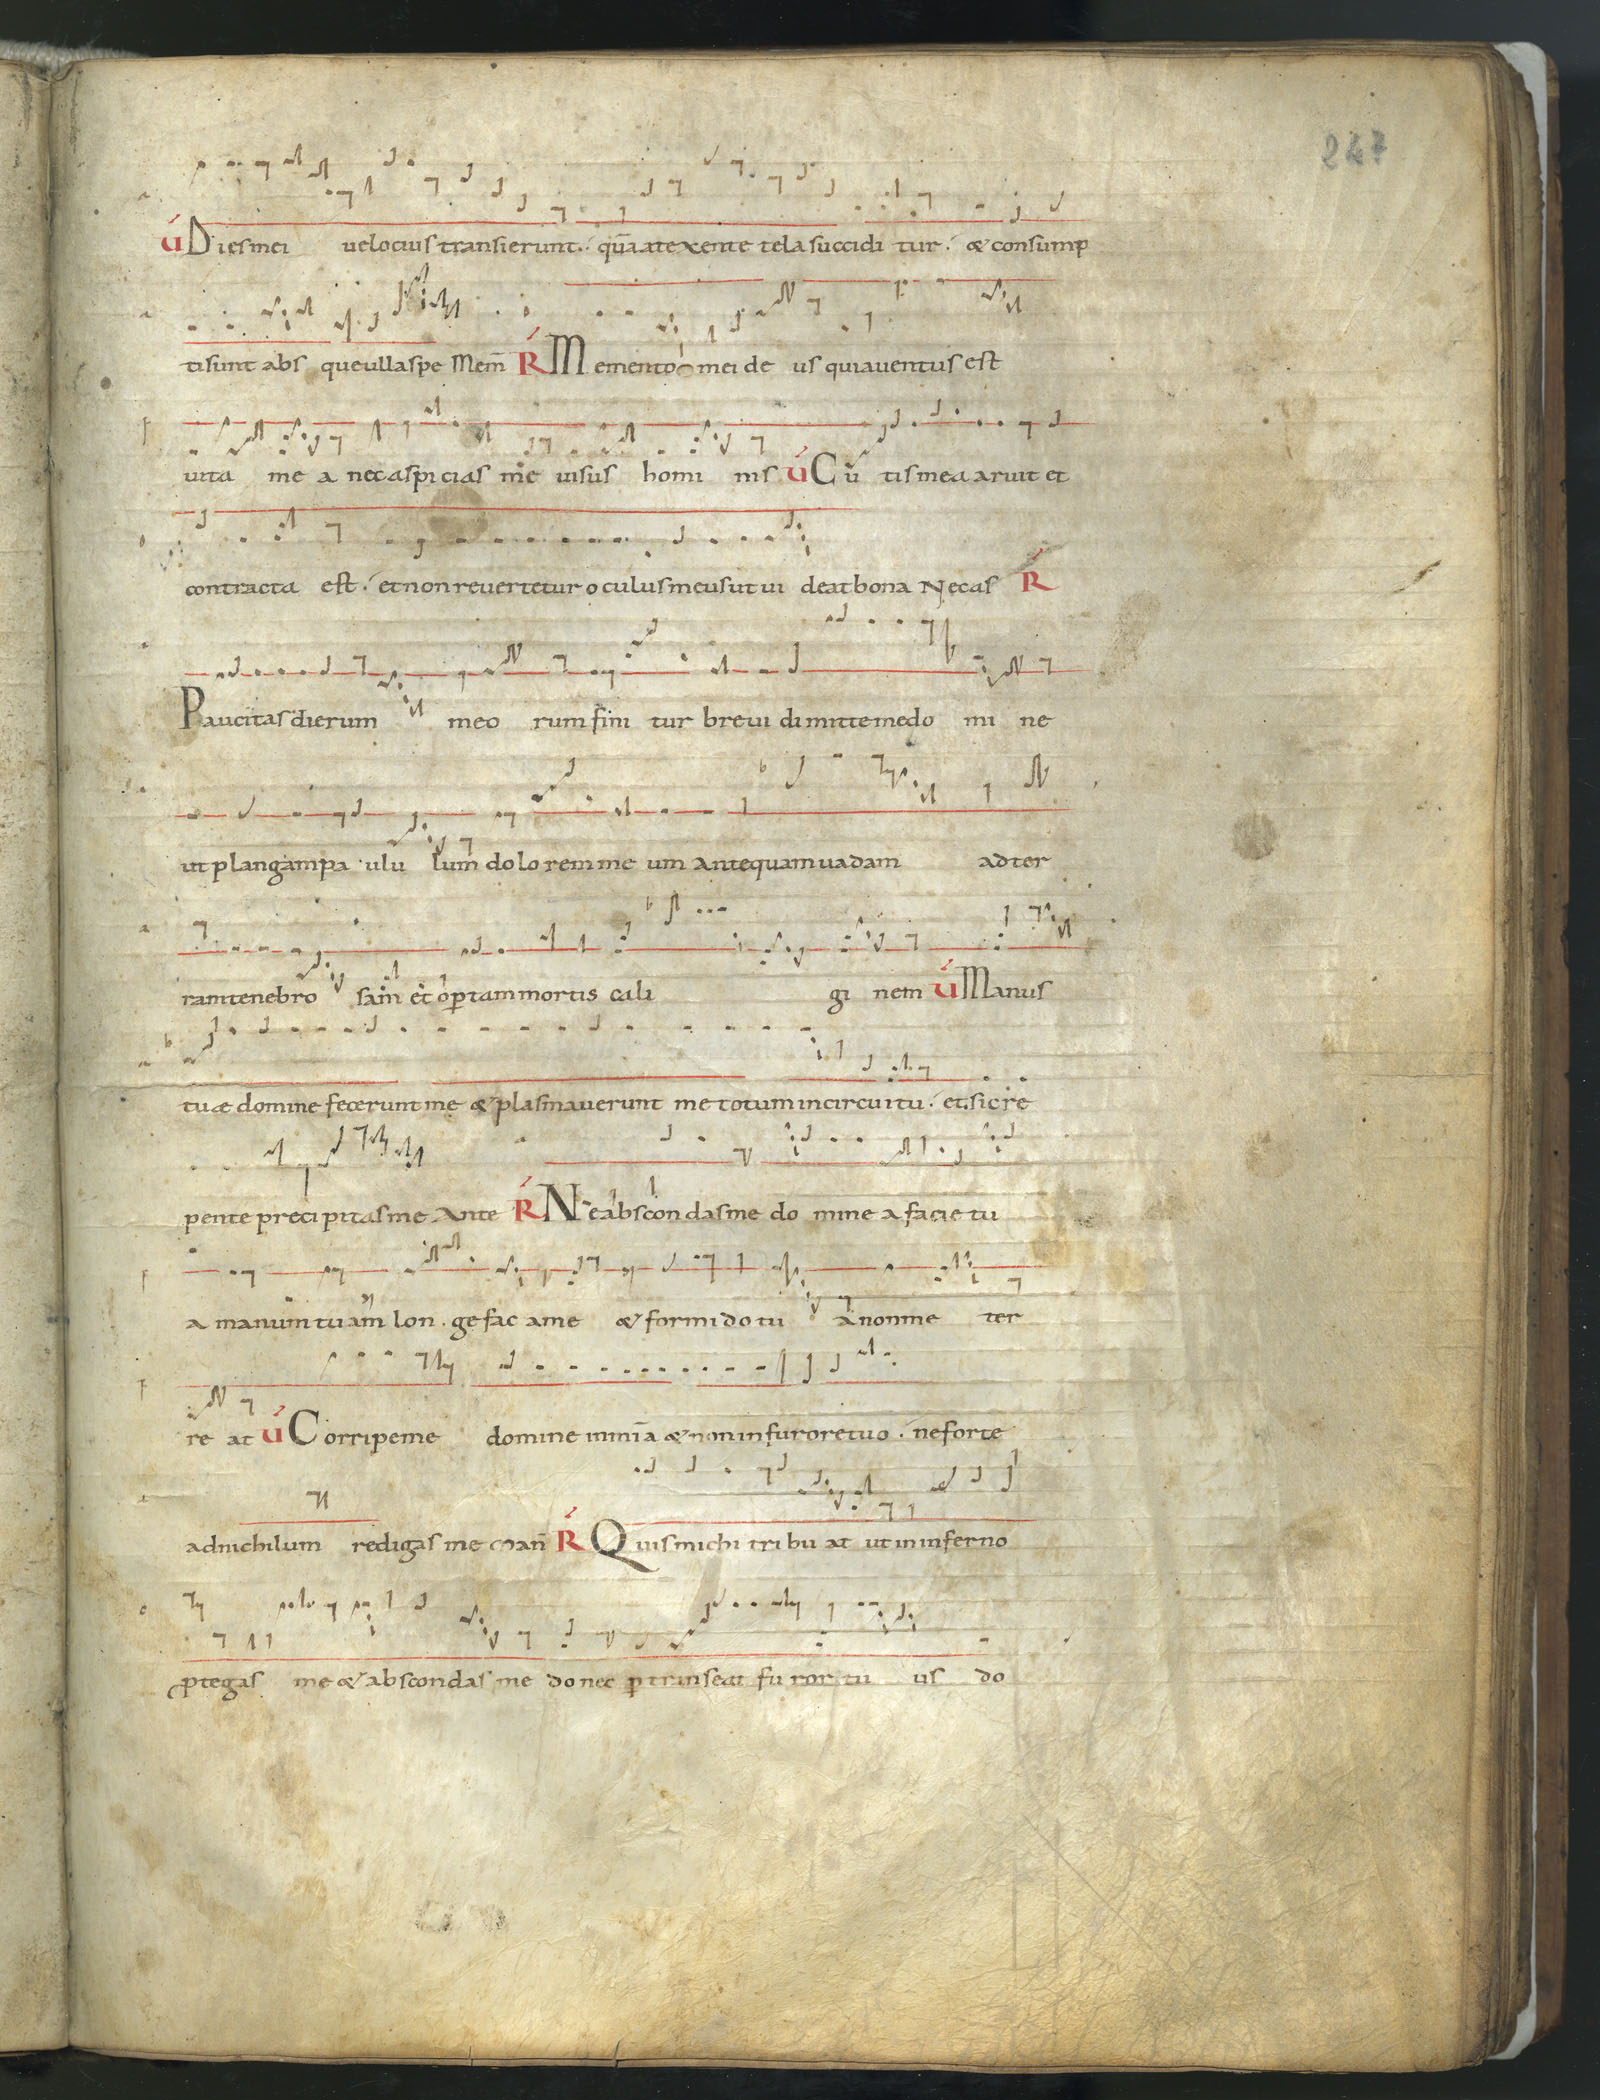 247
V́ Dies mei velocius transierunt. quā a texente tela succidi tur. & consump
ti sunt abs que ulla spe Mem̄ Ŕ Memento mei de us quia ventus est
vita me a nec aspi cias me visus homi nis V́ Cū tis mea aruit et
contracta est. et non revertetur o culus meus ut vi deat bona Nec as Ŕ
Paucitas dierum meo rum fini tur brevi dimitte me do mi ne
ut plangam pa ulu lum dolo rem me um antequam vadam ad ter
ram tenebro sam et opertam mortis cali gi nem V́ Manus
tuæ domine fecerunt me & plasmaverunt me totum in circuitu. et sic re
pente preci pitas me Ante Ŕ Ne abscondas me do mine a facie tu
a manum tuam lon. ge fac a me & formido tu a non me ter
re at V́ Corripe me domine in mīa & non in furore tuo. ne forte
ad nichilum redigas me Man̄ Ŕ Quis michi tri bu at ut in inferno
ꝓtegas me & abscondas me donec ꝑtranseat fu ror tu us do